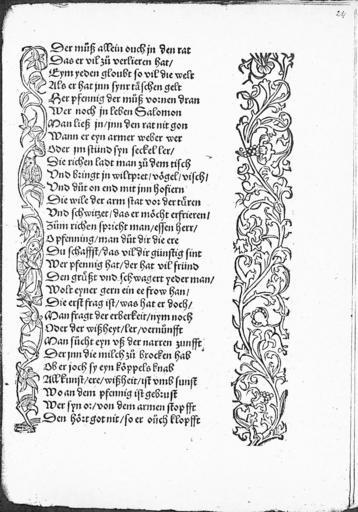 24
Der müß allein ouch jn den rat
Das er vil zů verlieren hat/
Eym yeden gloubt so vil die welt
Als er hat jnn synr täschen gelt
Her pfennig der müß vornen dran
Wer noch jn leben Salomon
Man ließ jn/jnn den rat nit gon
Wann er eyn armer weber wer
Oder jm stünd syn seckel ler/
Die richen ladt man zů dem tisch
Vnd bringt jn wiltpret/vögel/visch/
Vnd důt on end mit jnn hofieren
Die wile der arm stat vor der türen
Vnd schwitzet/das er möcht erfrieren/
Zům richen spricht man/essen herr/
O pfenning/man důt dir die ere
Du schaffst/das vil dir günstig sint
Wer pfennig hat/der hat vil fründ
Den grüßt vnd schwagert yeder man/
Wolt eyner gern ein ee frow han/
Die erst frag ist/was hat er doch/
Man fragt der erberkeit/nym noch
Oder der wißheyt/ler/vernunfft
Man sůcht eyn vß der narren zunfft
Der jnn die milch zů brocken hab
Ob er joch sy eyn köppels knab
All kunst/ere/wißheit/ist vmb sunst
Wo an dem pfennig ist gebrust
Wer syn or/von dem armen stopfft
Den hört got nit/so er oüch klopfft